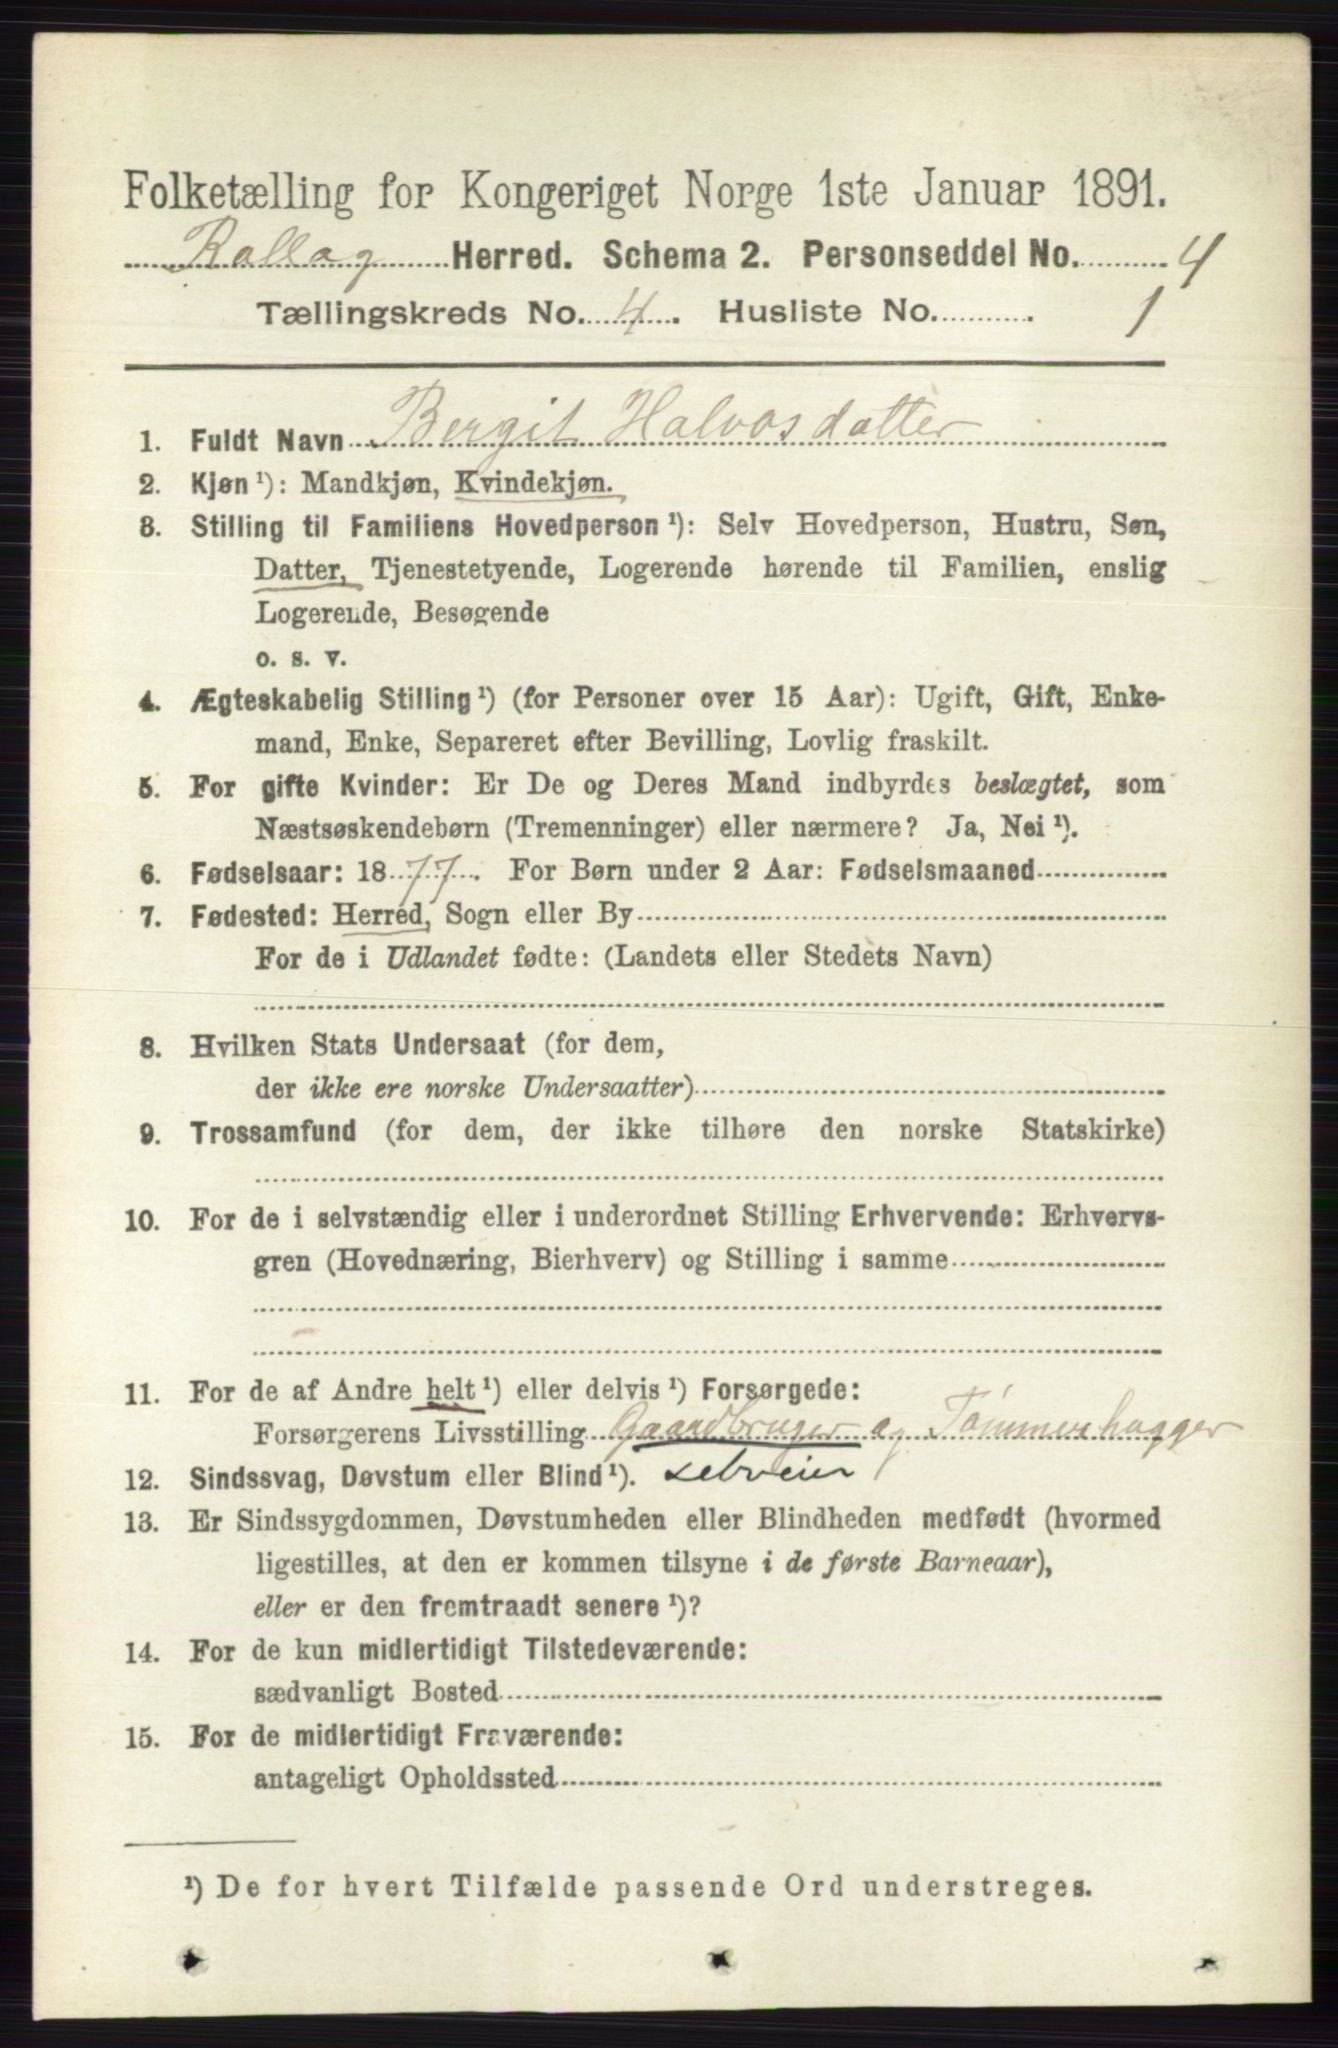 Folketælling for Kongeriget Norge 1ste Januar 1891.
Rollag Herred. Schema 2. Personseddel No. 4
Tællingskreds No. 4. Husliste No. 1
1. Fuldt Navn Bergit Halvosdatter
2. Kjøn ¹): Mandkjøn, Kvindekjøn.
3. Stilling til Familiens Hovedperson ¹): Selv Hovedperson, Hustru, Søn,
Datter, Tjenestetyende, Logerende hørende til Familien, enslig
Logerende, Besøgende
o. s. v.
4. Ægteskabelig Stilling ¹) (for Personer over 15 Aar): Ugift, Gift, Enke-
mand, Enke, Separeret efter Bevilling, Lovlig fraskilt.
5. For gifte Kvinder: Er De og Deres Mand indbyrdes beslægtet, som
Næstsøskendebørn (Tremenninger) eller nærmere? Ja, Nei ¹).
6. Fødselsaar: 1877. For Børn under 2 Aar: Fødselsmaaned
7. Fødested: Herred, Sogn eller By
For de i Udlandet fødte: (Landets eller Stedets Navn)
8. Hvilken Stats Undersaat (for dem,
der ikke ere norske Undersaatter)
9. Trossamfund (for dem, der ikke tilhøre den norske Statskirke)
10. For de i selvstændig eller i underordnet Stilling Erhvervende: Erhvervs-
gren (Hovednæring, Bierhverv) og Stilling i samme
11. For de af Andre helt ¹) eller delvis ¹) Forsørgede:
Forsørgerens Livsstilling Gaardbruger og Tömmerhugger
12. Sindssvag, Døvstum eller Blind ¹). selveier
13. Er Sindssygdommen, Døvstumheden eller Blindheden medfødt (hvormed
ligestilles, at den er kommen tilsyne i de første Barneaar),
eller er den fremtraadt senere ¹)?
14. For de kun midlertidigt Tilstedeværende:
sædvanligt Bosted
15. For de midlertidigt Fraværende:
antageligt Opholdssted
¹) De for hvert Tilfælde passende Ord understreges.